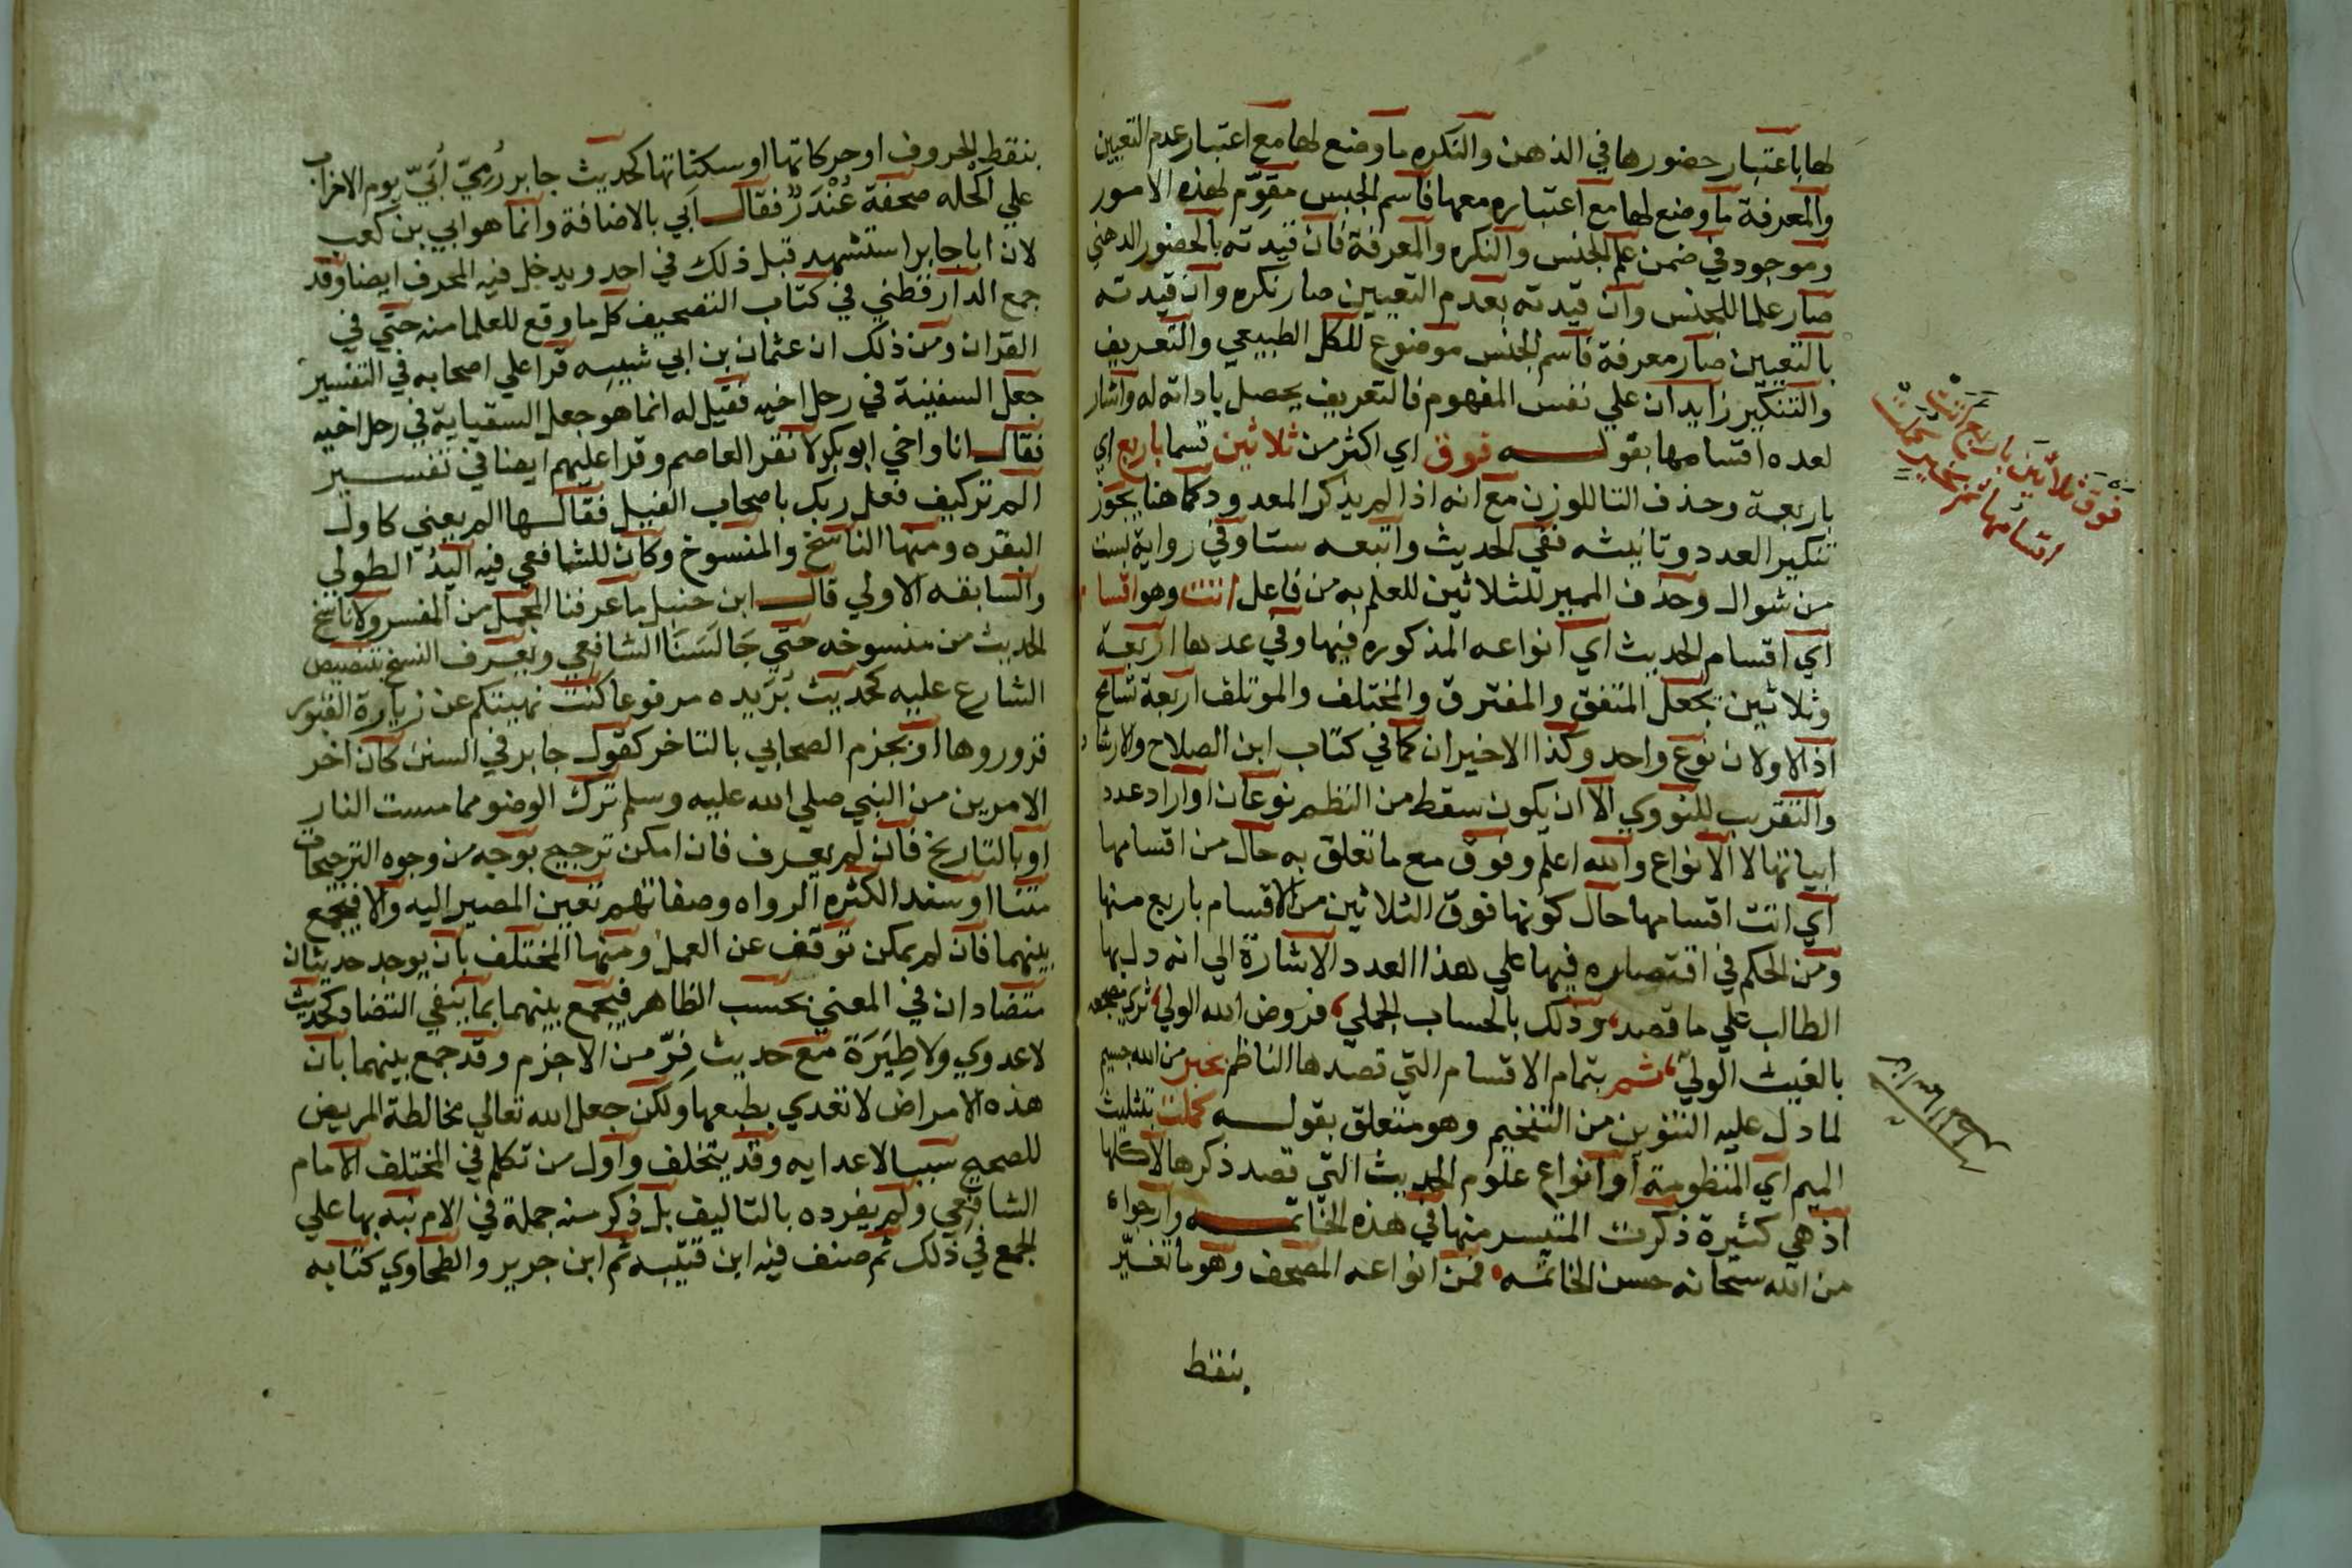 لها باعتبار حضورها في الذهن والنكره ما وضع لها مع اعتبار عدم التعيين
والمعرفة ما وضع لها مع اعتباره معها فاسم الجنس مقوّم لهذه الامور
وموجود في ضمن علم الجنس والنكره والمعرفة فان قيدته بالحضور الدهني
صار علما للجنس وان قيدته بعدم التعيين صار نكره وان قيدته
بالتعيين صار معرفة فاسم الجنس موضوع للكل الطبيعي والتعريف
والتنكير زايدان علي نفس المفهوم فالتعريف يحصل باداته له واشار
لعده اقسامها بقوله فوق اي اكثر من ثلاثين قسما باربع اي
باربعة وحذف التا للوزن مع انه اذا لم يذكر المعدود كما هنا يجوز
تنكير العدد وتانيثه ففي الحديث واتبعه ستا وفي رواية بست
من شوال وحذف المميز للثلاثين للعلم به من فاعل اتت وهو اقسا
اي اقسام الحديث اي انواعه المذكوره فيها وفي عدها اربعة
وثلاثين بجعل المتفق والمفترق والمختلف والموتلف اربعة تسامح
اذ الاولان نوع واحد وكذا الاخيران كما في كتاب ابن الصلاح والارشاد
والتقريب للنووي الا ان يكون سقط من النظم نوعان او اراد عدد
ابياتها لا الانواع والله اعلم وفوق مع ما تعلق به حال من اقسامها
اي اتت اقسامها حال كونها فوق الثلاثين من الاقسام باربع منها
ومن الحكم في اقتصاره فيها علي هذا العدد الاشارة الي انه دل بها
الطالب علي ما قصد وذلك بالحساب الجملي فروض الله الولي
بالغيث الوليّ ثم بتمام الاقسام التي قصدها الناظم بخير من الله جسيم
لما دل عليه التنوين من التفخيم وهو متعلق بقوله كملت بتثليث
الميم اي المنظومة او انواع علوم الحديث التي قصد ذكرها لا كلها
اذ هي كثيرة ذكرت المتيسر منها في هذه الخاتمه وارجوا
من الله سبحانه حسن الخاتمه فمن انواعه المصحف وهو ما تغيّر
بنقط
فوق ثلاثين باربع اتت
اقسامها ثم بخير كملت
بنقط الحروف او حركاتها او سكناتها كحديث جابر رُمِيَ أُبَيّ يوم الاحزاب
علي اكحله صحفة غُنْدَر فقال ابي بالاضافة وانما هو ابي بن كعب
لان ابا جابر استشهد قبل ذلك في احد ويدخل فيه المحرف ايضا وقد
جمع الدارقطني في كتاب التصحيف كل ما وقع للعلما منه حتي في
القران ومن ذلك ان عثمان بن ابي شيبه قرا علي اصحابه في التفسير
جعل السفينة في رحل اخيه فقيل له انما هو جعل السقاية في رحل اخيه
فقال انا واخي ابو بكر لا نقرا لعاصم وقرا عليهم ايضا في تفسير
الم تر كيف فعل ربك باصحاب الفيل فقالها الم يعني كاول
البقره ومنها الناسخ والمنسوخ وكان للشافعي فيه اليدُ الطولي
والسابقه الاولي قال ابن حنبل ما عرفنا المجمل من المفسر ولا ناسخ
الحديث من منسوخه حتي جَالَسَنَا الشافعي ويعرف النسخ بتنصيص
الشارع عليه كحديث بُرَيده مرفوعا كنت نهيتكم عن زيارة القبور
فزوروها او بجزم الصحابي بالتاخر كقول جابر في السنن كان اخر
الامرين من النبي صلي الله عليه وسلم ترك الوضو مما مست النار
او بالتاريخ فان لم يعرف فان امكن ترجيح بوجه من وجوه الترجيحات
متنا او سندا لكثره الرواه وصفاتهم تعين المصير اليه والا فيجمع
بينهما فان لم يمكن توقف عن العمل ومنها المختلف بان يوجد حديثان
متضادان في المعني بحسب الظاهر فيجمع بينهما بما ينفي التضاد كحديث
لا عدوي ولا طِيَرَة مع حديث فِرّ من الاجزم وقد جمع بينهما بان
هذه الامراض لا تعدي بطبعها ولكن جعل الله تعالي مخالطة المريض
للصحيح سببا لاعدايه وقد يتخلف واول من تكلم في المختلف الامام
الشافعي ولم يفرده بالتاليف بل ذكر منه جملة في الام نبه بها علي
الجمع في ذلك ثم صنف فيه ابن قتيبه ثم ابن جرير والطحاوي كتابه